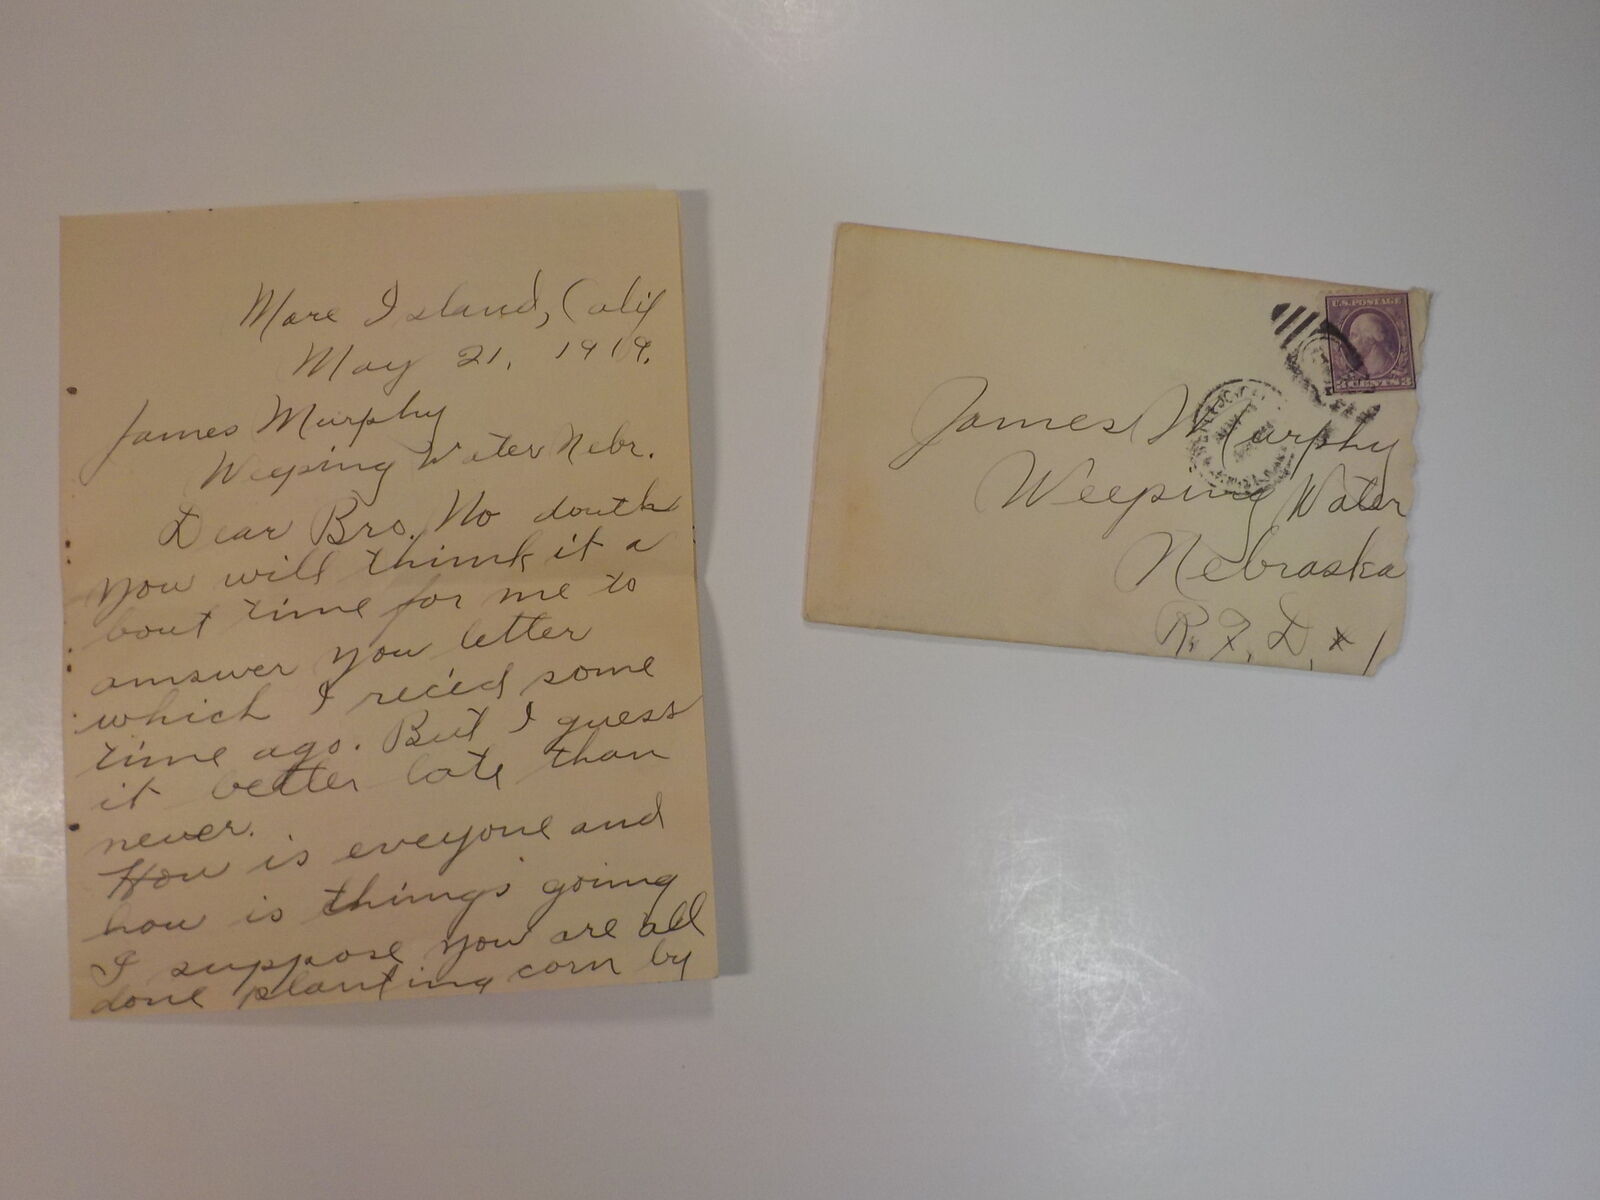 Mare Island, Calif
May 21, 1919.
James Murphy
Weeping Water Nebr.
Dear Bro. No doutb
you will think it a
bout time for me to
answer you letter
which I rec'ed some
time ago. But I guess
it better late than
never.
How is eveyone and
how is things going
I suppose you are all
done planting corn by
U.S. POSTAGE
3 CENTS 3
James Murphy
Weeping Water
Nebraska
R. F. D. # 1